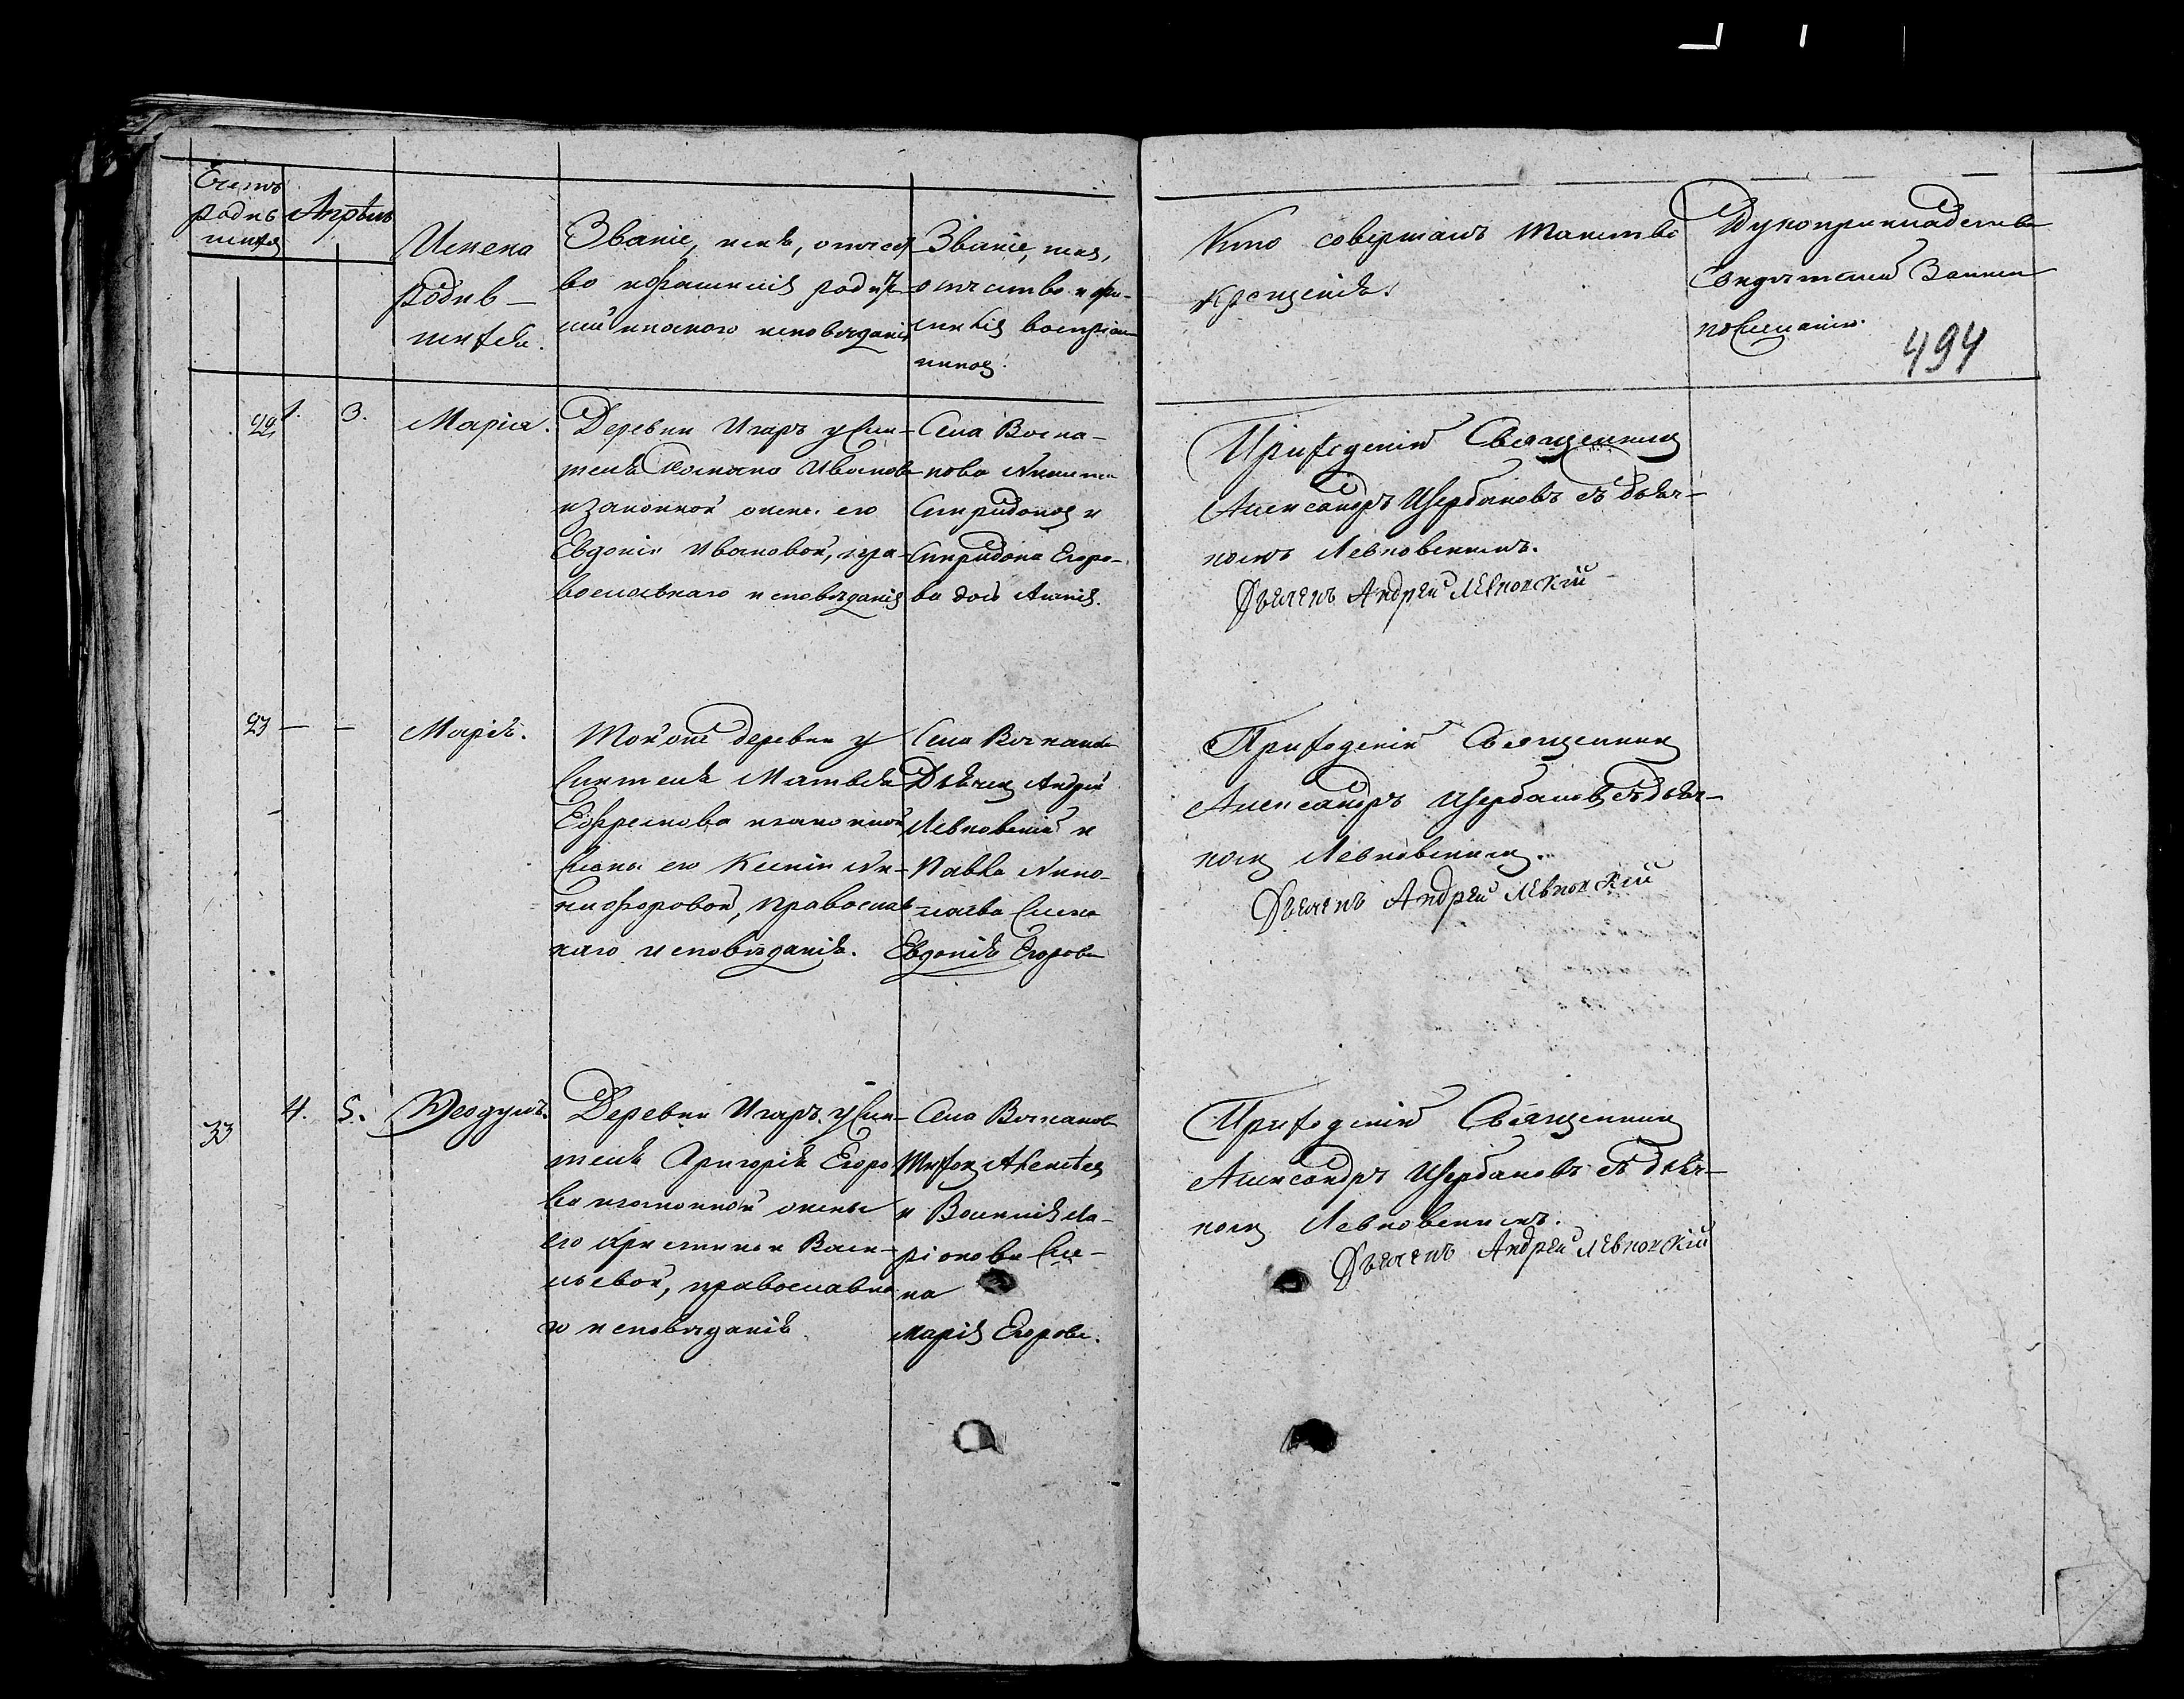 Счетъ
родив
шихся
Апрѣль
Имена
родив-
шихся.
Званіе, имя, отчест
во и фамилія родите
лей и какого исповѣданія
Званіе, имя,
отчество и фа-
милія воспріем
никовъ.
Кто совершалъ таинство
крещенія.
Рукоприкладство
свидѣтелей записи
по желанію.
494
22
1.
3.
Марія.
Деревни Игаръ у жи-
теля Ивановa
и законной жены его
Евдокіи Ивановой, пра-
вославнаго исповѣданія
Села
Спиридоновъ и
Спиридона Егоро-
ва дочь
Приходскій Священникъ
Александръ Щербаковъ съ дьяч-
комъ Левковскимъ.
Дьячекъ Андрей Левковскій
23
—
—
Марія.
Той же деревни у
жителя Матвѣя
Ефремова и законной
жены его Ксеніи Ни-
кифоровой, православ
наго исповѣданія.
Села
Дьячекъ Андрей
Левковскій и
Павла Нико-
лаева жена
Евдокія Егорова
Приходскій Священникъ
Александръ Щербаковъ съ дьяч-
комъ Левковскимъ.
Дьячекъ Андрей Левковскій
33
4.
5.
Ѳеодулъ.
Деревни Игаръ у жи-
теля Григорія Егоро
ва и законной жены
его Христины Васи-
льевой, православна
го исповѣданія.
Села
Тихонъ Алексѣевъ
и Василія Ла-
ріонова же-
на
Марія Егорова.
Приходскій Священникъ
Александръ Щербаковъ съ дьяч-
комъ Левковскимъ.
Дьячекъ Андрей Левковскій